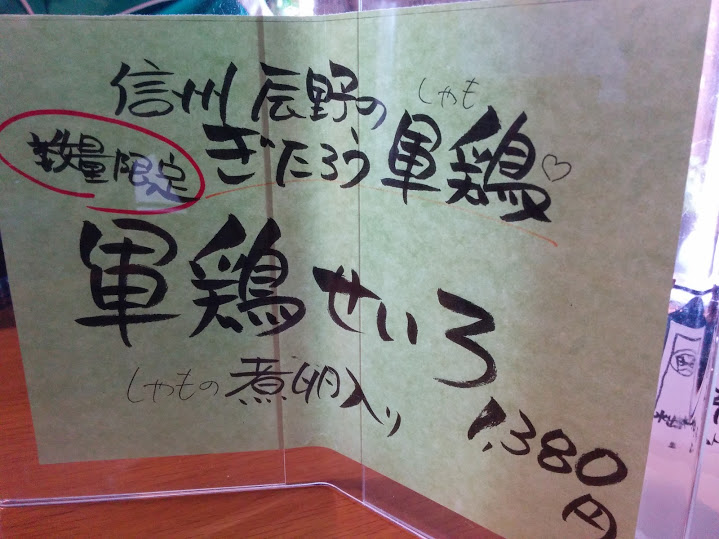 信州 辰野の
しゃも
数量限定
ぎたろう軍鶏♡
軍鶏せいろ
しゃもの煮卵入り
1,380
円